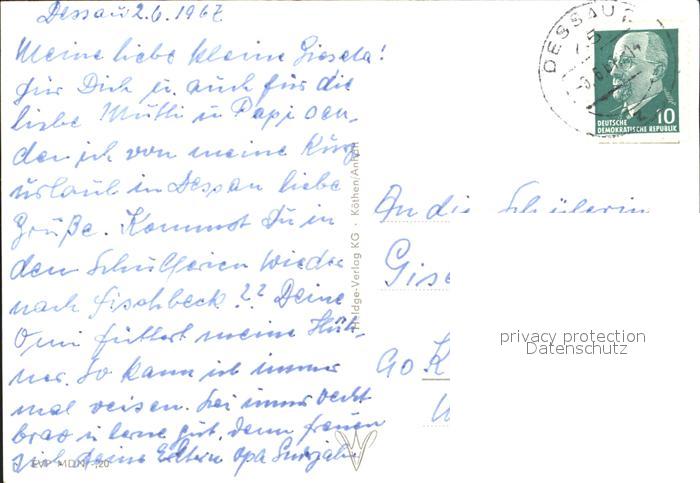 Dessau 2.6.1967
Meine liebe kleine Gisela!
für Dich u. auch für die
liebe Mutti u Papi sen-
den ich von meine Kurz
urlaub in Dessau liebe
Grüße. Kommst Du in
den Schulferien wieder
nach Fischbeck?? Deine
Omi füttert meine Hüh-
ner. So kann ich immer
mal reisen. Sei immer recht
brav u lerne gut, denn freuen
sich Deine Eltern Opa
EVP MDN -,20
Heldge-Verlag KG · Köthen/Anhalt
DESSAU
5
DEUTSCHE
DEMOKRATISCHE REPUBLIK
10
An die Schülerin
Gise
90 K
privacy protection
Datenschutz